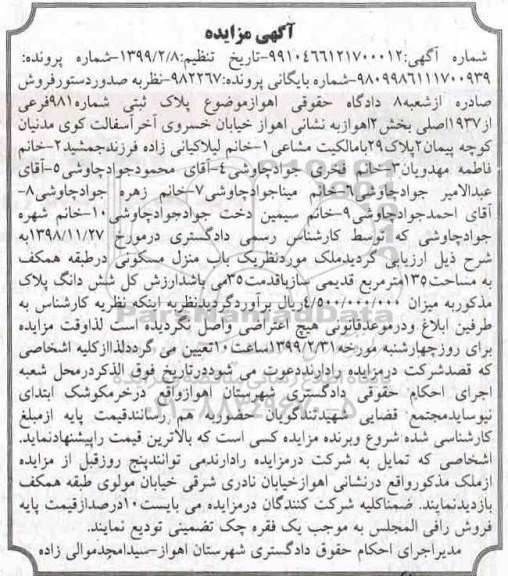 آگهی مزایده
شماره آگهی:۹۹۱۰۴۶۶۱۲۱۷۰۰۰۱۲-تاریخ تنظیم:۱۳۹۹/۲/۸-شماره پرونده:
۹۸۰۹۹۸۶۱۱۱۷۰۰۹۳۹-شماره بایگانی پرونده:۹۸۲۲۶۷-نظربه صدوردستورفروش
صادره ازشعبه۸ دادگاه حقوقی اهوازموضوع پلاک ثبتی شماره۹۸۱فرعی
از۱۹۳۷اصلی بخش۲اهوازبه نشانی اهواز خیابان خسروی آخرآسفالت کوی مدنیان
کوچه پیمان۲پلاک۲۹بامالکیت مشاعی۱-خانم لیلاکیانی زاده فرزندجمشید۲-خانم
فاطمه مهدویان۳-خانم فخری جوادچاوشی۴-آقای محمودجوادچاوشی۵-آقای
عبدالامیر جوادچاوشی۶-خانم میناجوادچاوشی۷-خانم زهره جوادچاوشی۸-
آقای احمدجوادچاوشی۹-خانم سیمین دخت جوادجوادچاوشی۱۰-خانم شهره
جوادچاوشی که توسط کارشناس رسمی دادگستری درمورخ ۱۳۹۸/۱۱/۲۷به
شرح ذیل ارزیابی گردیدملک موردنظریک باب منزل مسکونی درطبقه همکف
به مساحت۱۳۵مترمربع قدیمی سازباقدمت۳۵می باشدارزش کل شش دانگ پلاک
مذکوربه میزان ۴/۵۰۰/۰۰۰/۰۰۰ریال برآوردگردیدنظربه اینکه نظریه کارشناس به
طرفین ابلاغ ودرموعدقانونی هیچ اعتراضی واصل نگردیده است لذاوقت مزایده
برای روزچهارشنبه مورخه۱۳۹۹/۲/۳۱ساعت۱۰تعیین می گرددلذاازکلیه اشخاصی
که قصدشرکت درمزایده رادارنددعوت می شوددرتاریخ فوق الذکردرمحل شعبه
اجرای احکام حقوقی دادگستری شهرستان اهوازواقع درخرمکوشک ابتدای
نیوسایدمجتمع قضایی شهیدتندگویان حضوربه هم رسانندقیمت پایه ازمبلغ
کارشناسی شده شروع وبرنده مزایده کسی است که بالاترین قیمت راپیشنهادنماید.
اشخاصی که تمایل به شرکت درمزایده رادارندمی توانندپنج روزقبل از مزایده
ازملک مذکورواقع درنشانی اهوازخیابان نادری شرقی خیابان مولوی طبقه همکف
بازدیدنمایند. ضمناکلیه شرکت کنندگان درمزایده می بایست۱۰درصدازقیمت پایه
فروش رافی المجلس به موجب یک فقره چک تضمینی تودیع نمایند.
مدیراجرای احکام حقوق دادگستری شهرستان اهواز-سیدامجدموالی زاده